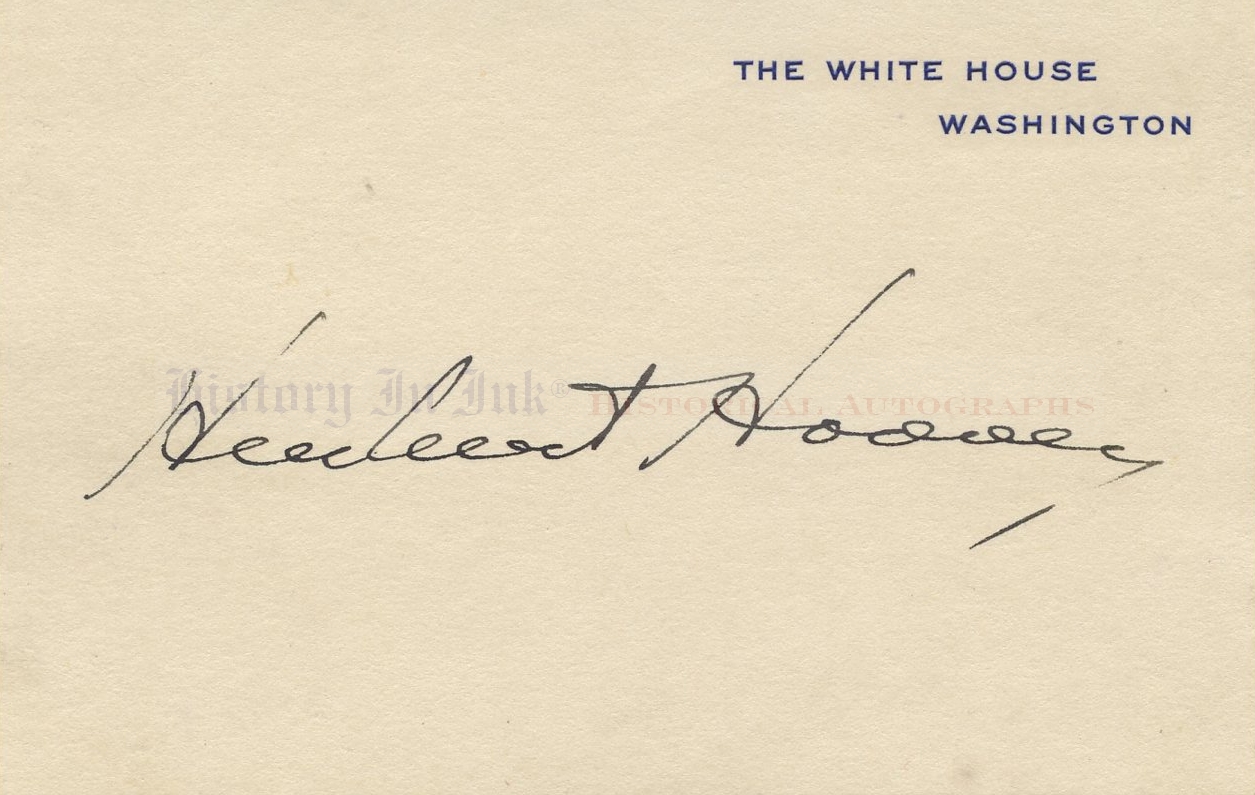 THE WHITE HOUSE
WASHINGTON
History In Ink® HISTORICAL AUTOGRAPHS
Herbert Hoover